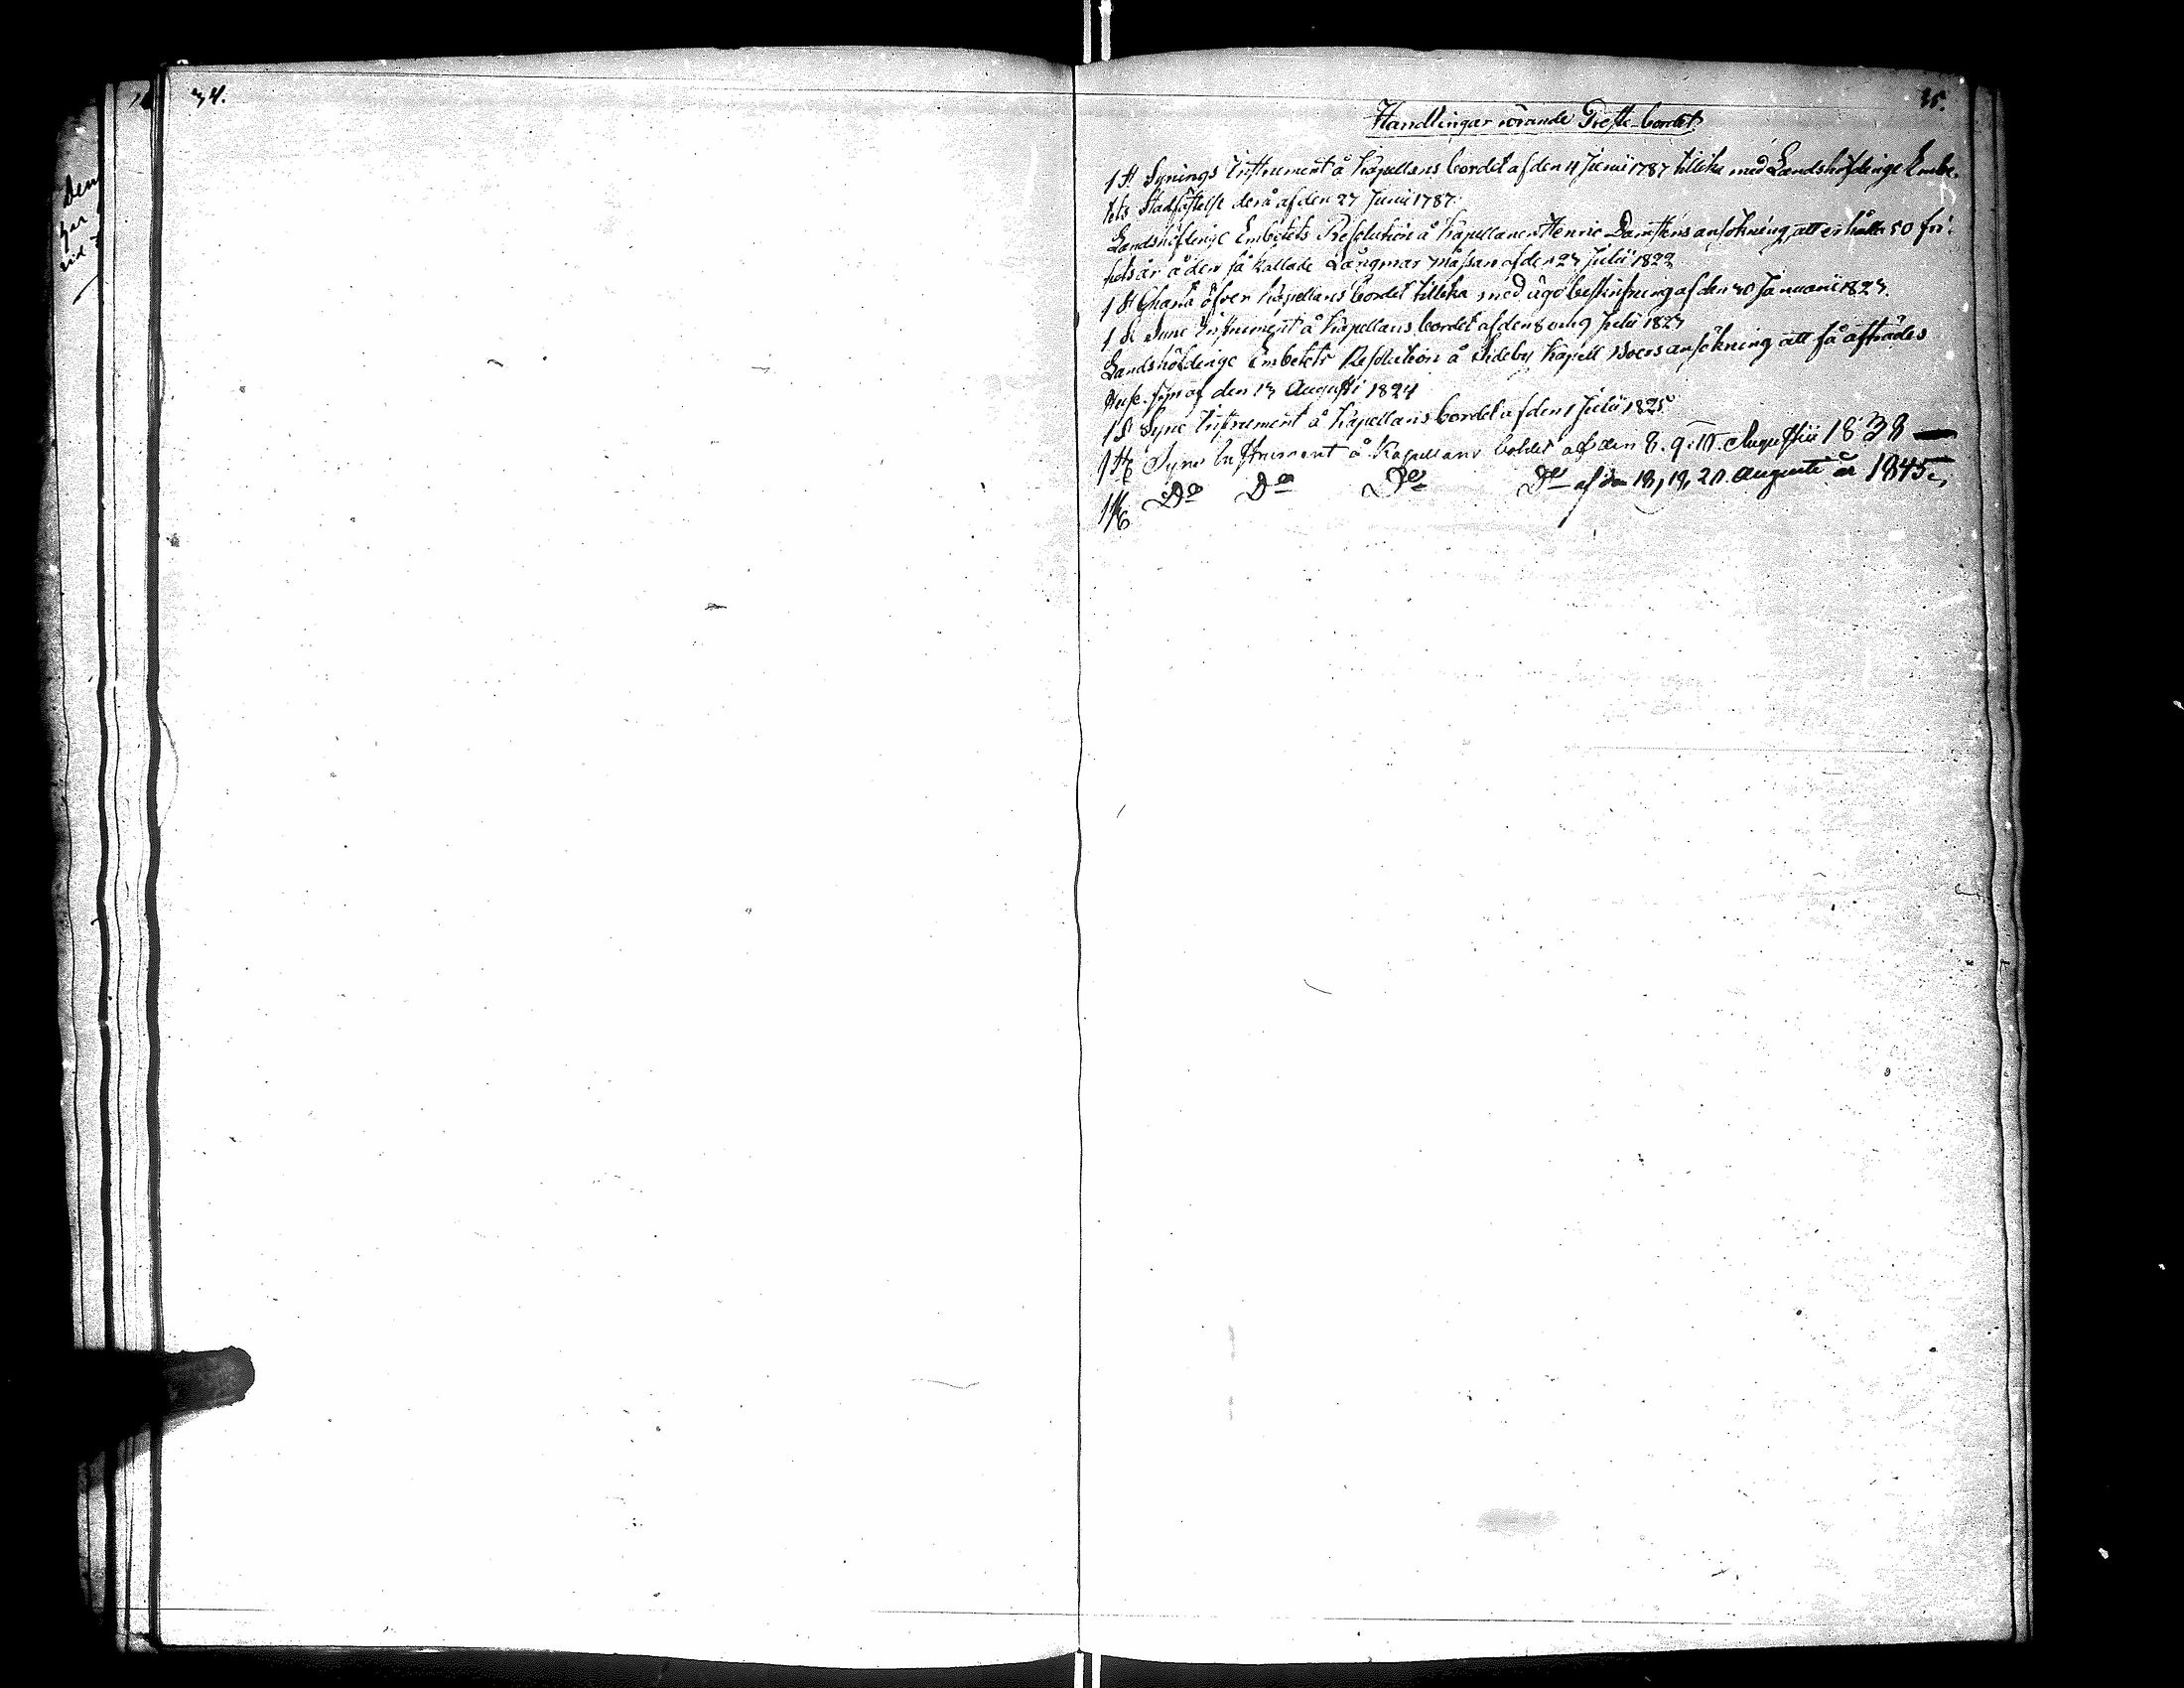 34.
35.
Handlingar rörande Preste-bordet.
1 St Synings Instrument å Kapellans bordet af den 4 Junii 1787 tillika med Landshöfdinge Embe-
tets Stadfästelse derå af den 27 Junii 1787.
Landshöfdinge Embetets Resolution å Kapellanen Henric Damsténs ansökning, att erhålla 50 fri-
hets år å den så kallade Långmar måssan af den 23 Julii 1822
1 St Charta öfver Kapellans bordet tillika med ägobeskrifning af den 30 Januarii 1823.
1 St Syne Instrument å Kapellans bordet af den 8 och 9 Julii 1823
Landshöfdinge Embetets Resolution å Sideby Kapell Boers ansökning att få afträdes
Huse-syn af den 13 Augusti 1824
1 St Syne Instrument å Kapellans bordet af den 1 Julii 1825.
1 St Syne Instrument å Kapellans bohlet af den 8. 9. 10. Augustii 1838
1 St Do Do Do Do af den 18, 19, 20. Augusti år 1845.